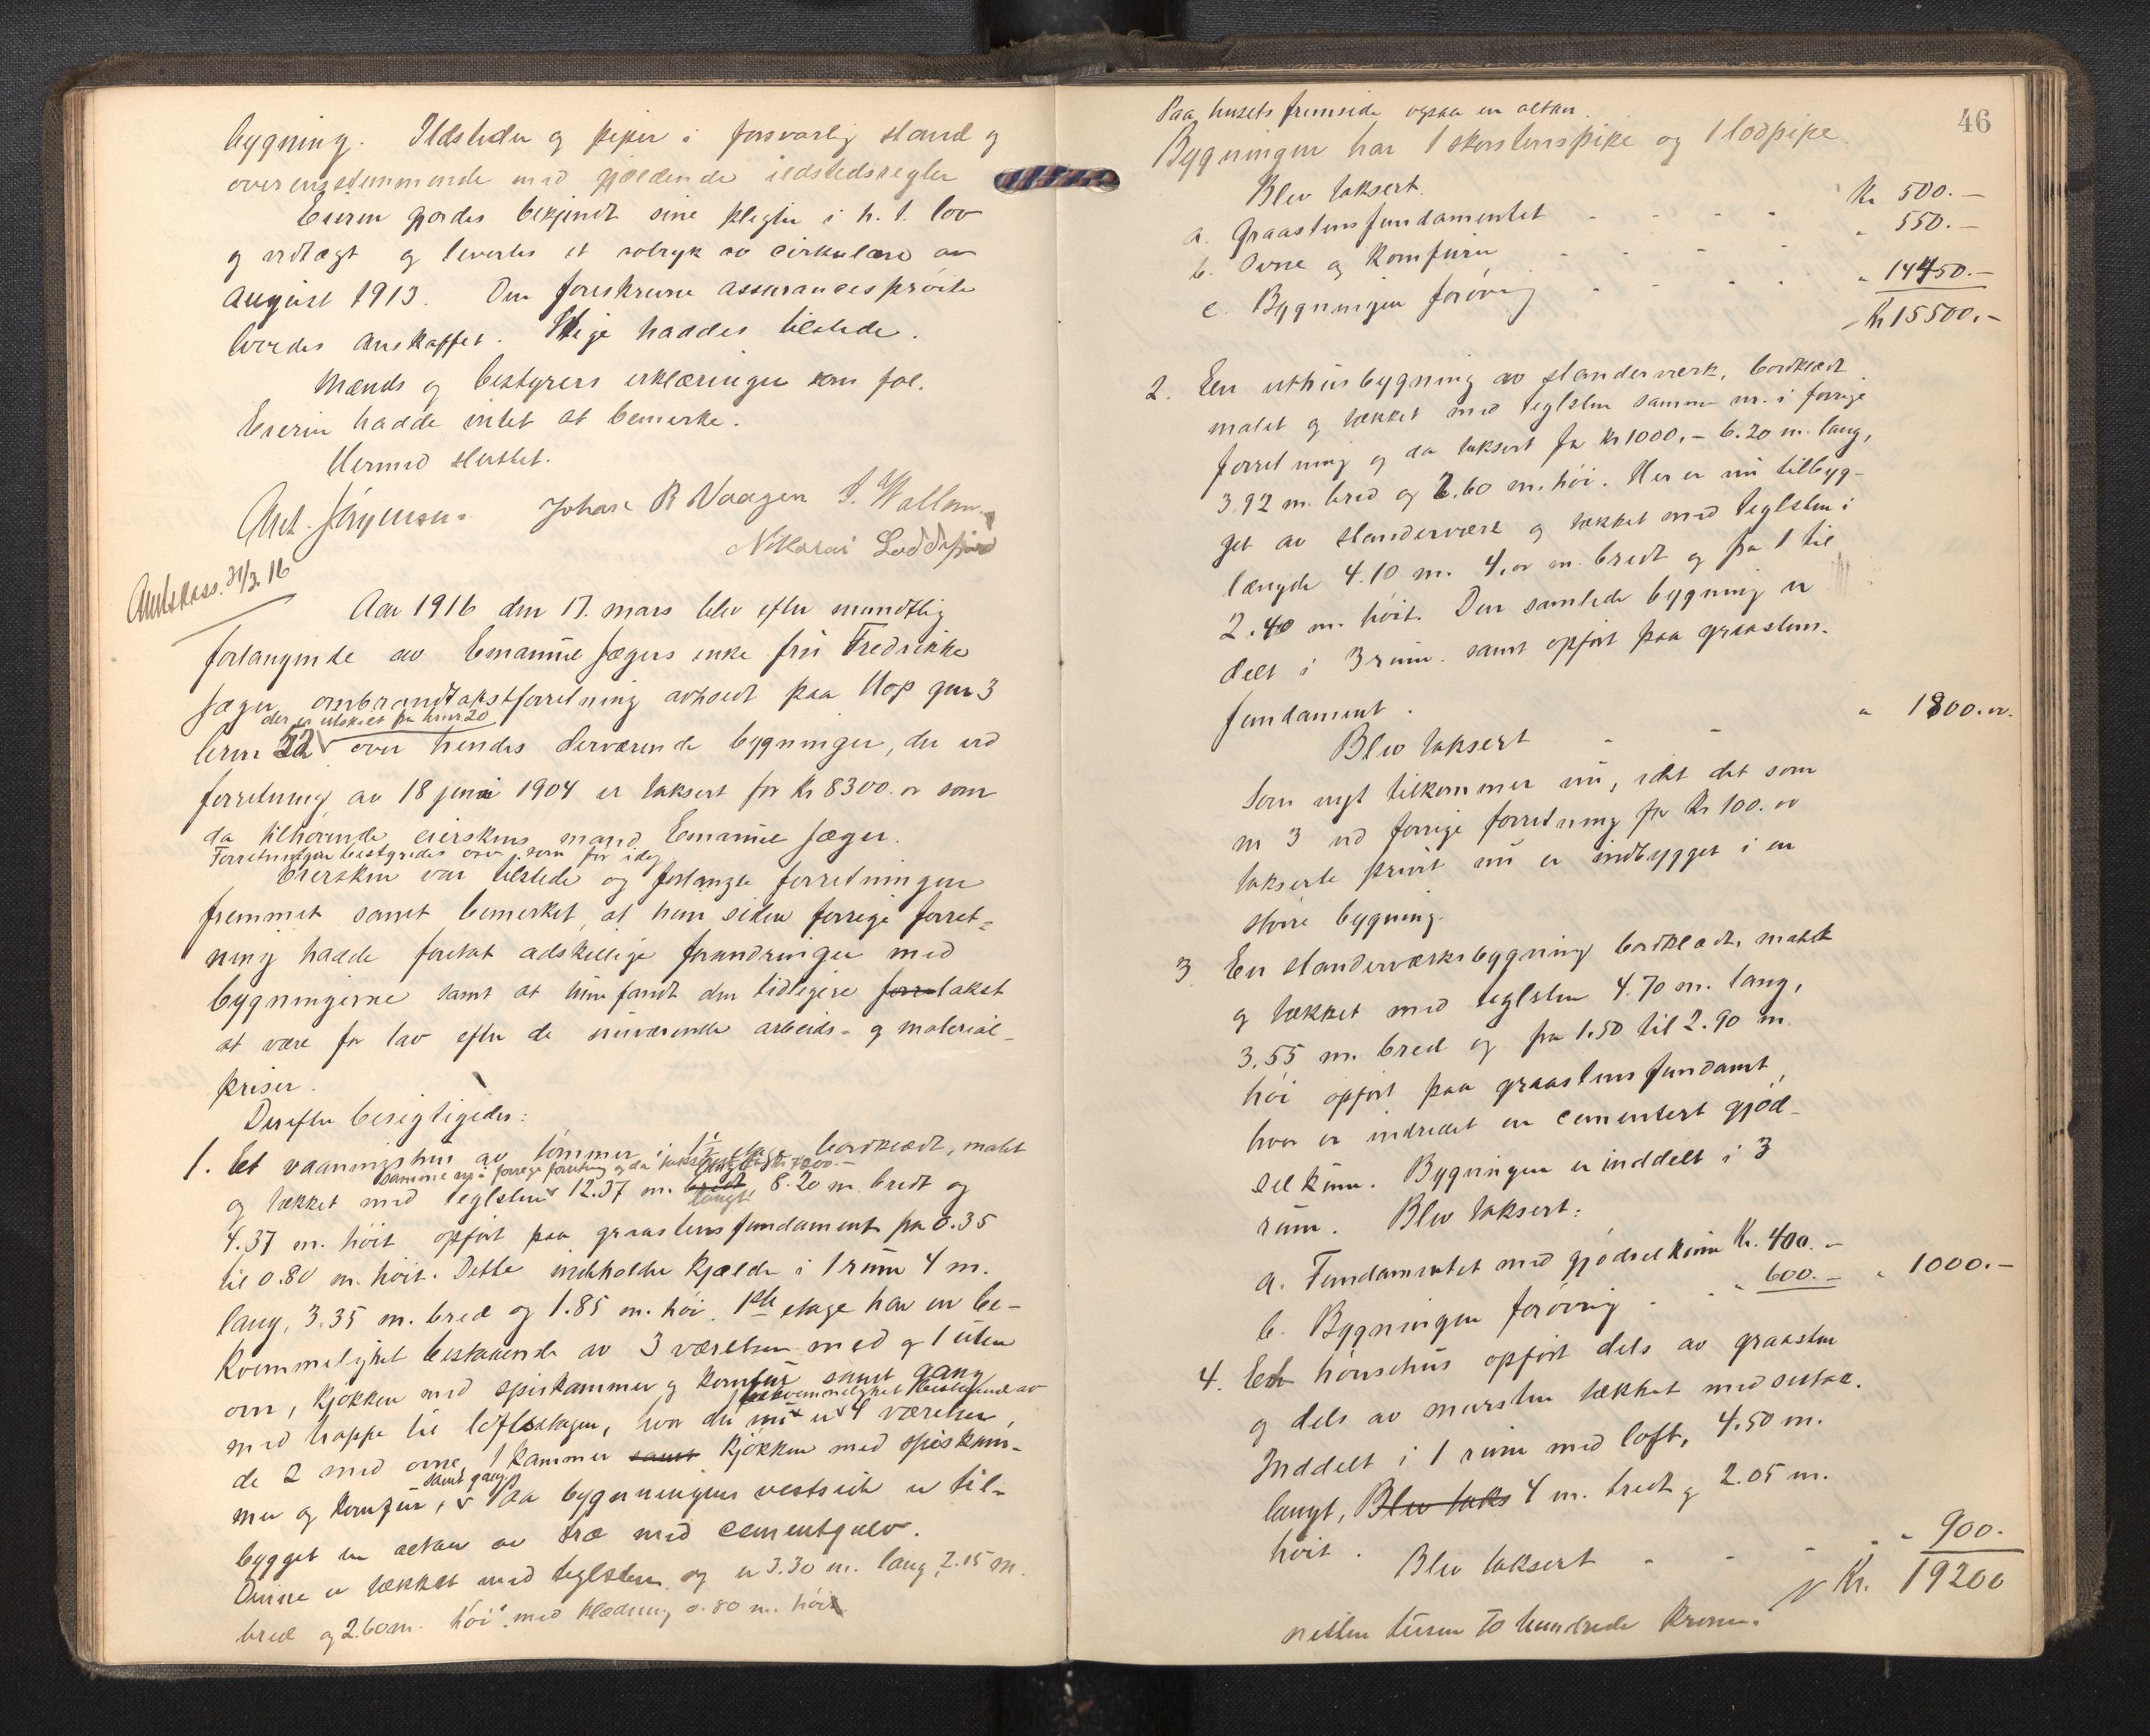 bygning. Ildsteder og piper i forsvarlig stand og
overensstemmende med gjældende ildstedsregler
Eieren gjordes bekjendt sine pligter i h. t. lov
og vedtægt og levertes et avtryk av cirkulære av
august 1913. Den foreskrevne assurancesprøite
burdes anskaffet. Stige haddes tilstede.
Mænds og bestyrers erklæringer som fol.
Eieren hadde intet at bemerke.
Hermed sluttet.
Ant. Jörgensen. Johan R Vaagen S. Wallem
Nikolai Loddefjord
Amtskass. 31/3. 16
Aar 1916 den 17. mars blev efter mundtlig
forlangende av Emanuel Jægers enke fru Fredrikke
Jæger ombrandtakstforretning avholdt paa Hop gnr 3
der er utskilt fra brnr 20
brnr 22 over hendes derværende bygninger, der ved
forretning av 18 juni 1904 er taksert for Kr 8300.oo som
da tilhørende eierskens mand Emanuel Jæger.
Forretningen bestyredes av som for idag
Eiersken var tilstede og forlangte forretningen
fremmet samt bemerket, at hun siden forrige forret-
ning hadde foretat adskillige forandringer med
bygningerne samt at hun fandt den tidligere forre takst
at være for lav efter de nuværende arbeids- og material-
priser.
Derefter besigtigedes:
1. Et vaaningshus av tømmer i 1½ etage bordklædt, malt
samme nr. i forrige forretning og da taksert for Kr. 7200.-
og tækket med teglsten 12.37 m. bredt langt, 8.20 m bredt og
4.37 m. høit opført paa graastensfundament fra 0.35
til 0.80 m. høit. Dette indeholder kjælder i 1 rum 4 m.
lang, 3.35 m. bred og 1.85 m. høi. 1ste etage har en be-
kvemmelighet bestaaende av 3 værelser med og 1 uten
ovn, kjøkken med spiskammer og komfur samt gang
bekvemmelighet bestaaende av
med trappe til loftsetagen, hvor der nu er 4 værelser,
de 2 med ovne, 1 kammer samt kjøkken med spiskam-
samt gang
mer og komfur, Paa bygningens vestside er til-
bygget en altan av træ med cementgulv.
Denne er tækket med teglsten og er 3.30 m. lang, 2.15 m.
bred og 2.60 m. høi, med klædning 0.80 m. høit
46
Paa husets fremside ogsaa en altan.
Bygningen har 1 skorstenspipe og 1 lodpipe.
Blev taksert.
a. Graastensfundamentet - - - - Kr 500.-
b. Ovne og komfurer - - - - " 550.-
c. Bygningen forøvrig - - - - " 14450.-
Kr 15500.-
2. En uthusbygning av standerværk, bordklædt
malet og tækket med teglsten samme nr. i forrige
forretning og da taksert for Kr 1000,- 6.20 m. lang,
3.92 m. bred og 2.60 m. høi. Her er nu tilbyg-
get av standerværk og tækket med teglsten i
længde 4.10 m. 4,oo m. bredt og fra 1 til
2.40 m. høit. Den samlede bygning er
delt i 3 rum. samt opført paa graastens-
fundament.
Blev taksert - - " 1800.oo.
Som nyt tilkommer nu, idet det som
nr 3 ved forrige forretning for Kr 100.oo
takserte privet nu er indbygget i en
større bygning.
3 En standerværksbygning bordklædt, malt
og tækket med teglsten 4.70 m. lang,
3.55 m. bred og fra 1.50 til 2.90 m.
høi opført paa graastensfundamt,
hvor er indredet en cementert gjød-
selkum. Bygningen er inddelt i 3
rum. Blev taksert:
a. Fundamentet med gjødselkum Kr. 400.-
b. Bygningen forøvrig - - " 600.- " 1000.-
4. Et hønsehus opført dels av graasten
og dels av mursten tækket med
Inddelt i 1 rum med loft, 4.50 m.
langt, Blev taks 4 m. bredt og 2.05 m.
høit. Blev taksert - - - - " 900.-
Kr. 19200
nitten tusen to hundrede kroner.